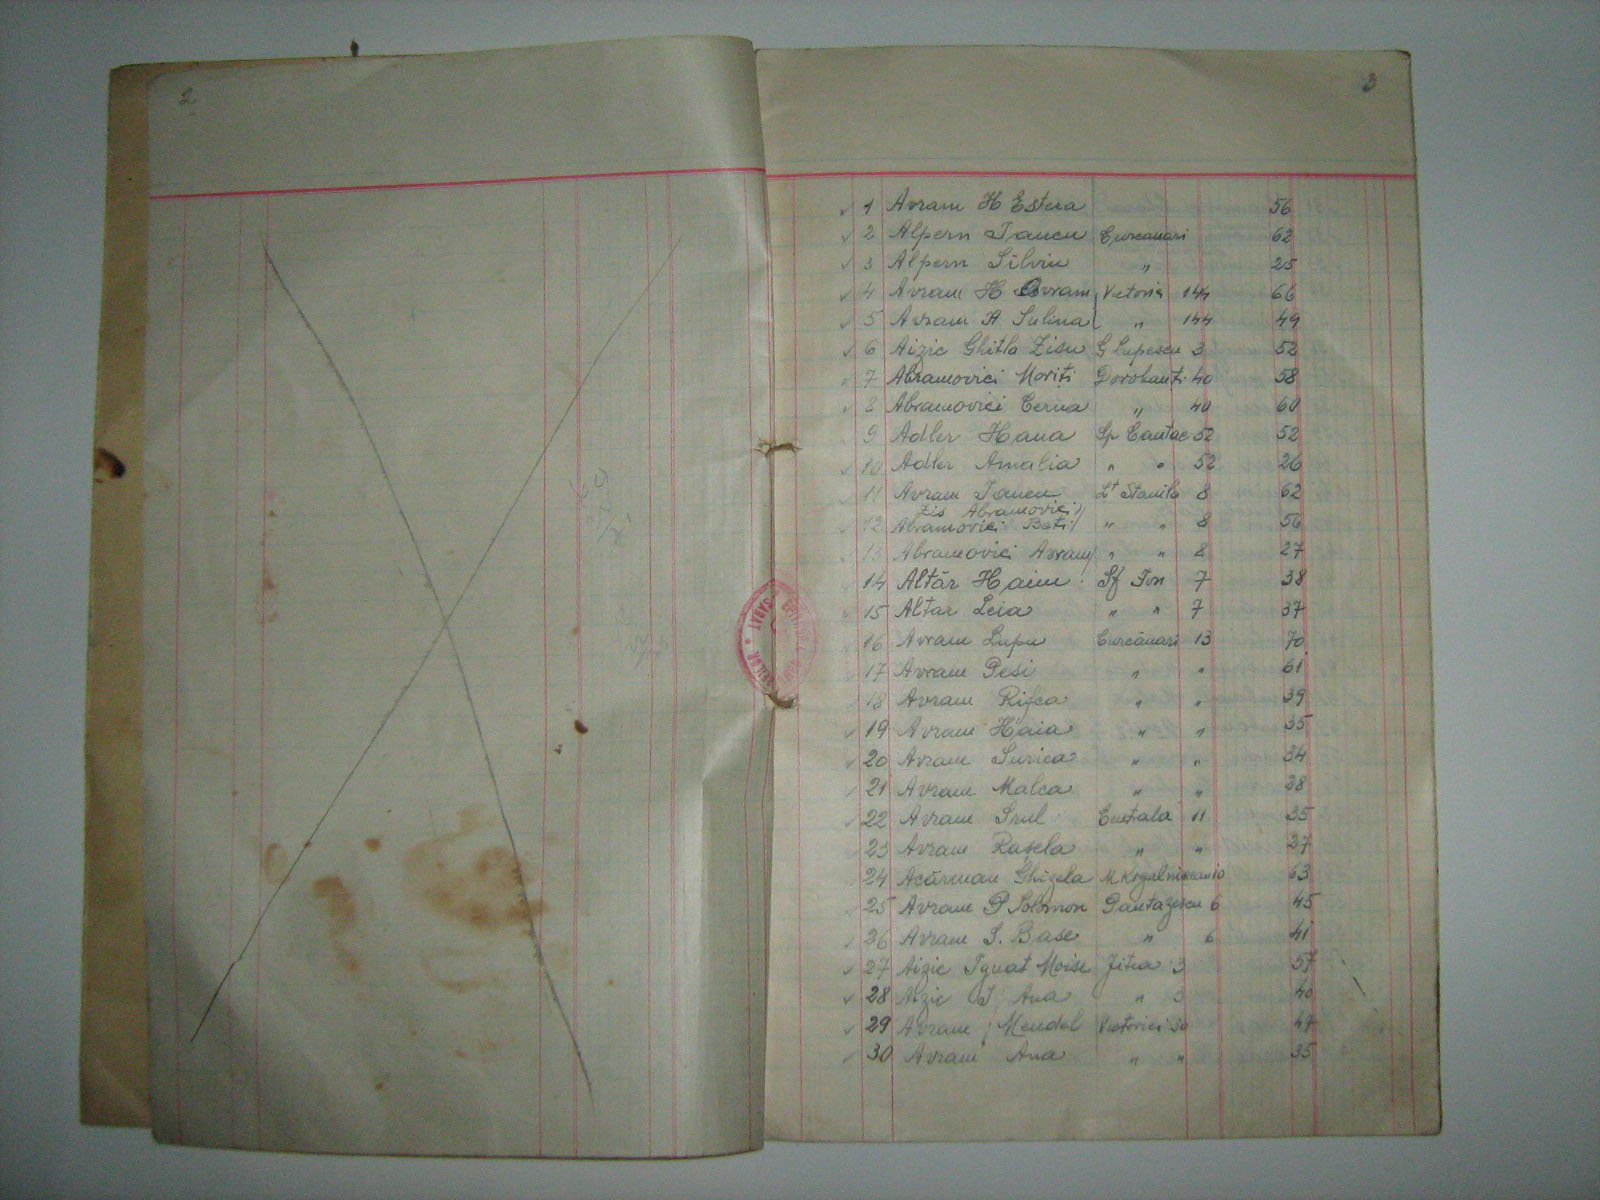 2
3
1 Avram H Estera 56
2 Alpern Iancu Curcanari 62
3 Alpern Silviu " 25
4 Avram H Avram Victoria 144 66
5 Avram A Sulina " 144 49
6 Aizic Ghitla Zisu G Lupescu 3 52
7 Abramovici Moriți Dorobanți 40 58
8 Abramovici Cerna " 40 60
9 Adler Hana Sp Cantac 52 52
10 Adler Amalia " " 52 26
11 Avram Iancu Lt Stanila 8 62
Zis Abramovici
12 Abramovici Beti " " 8 56
13 Abramovici Avram " " 8 27
14 Altăr Haim Sf Ion 7 38
15 Altar Leia " " 7 37
16 Avram Lupu Curcănari 13 70
17 Avram Pesi " " 61
18 Avram Rifca " " 39
19 Avram Haia " " 35
20 Avram Surica " " 34
21 Avram Malca " " 38
22 Avram Srul 11 35
23 Avram Rașela " " 27
24 Acărman Ghizela M Kogalniceanu 63
25 Avram P Solomon Pantazescu 6 45
26 Avram S. Base " 6 41
27 Aizic Ignat Moise Jitia 3 57
28 Aizic I Ana " 3 40
29 Avram Mendel Victoriei 30 47
30 Avram Ana " " 35